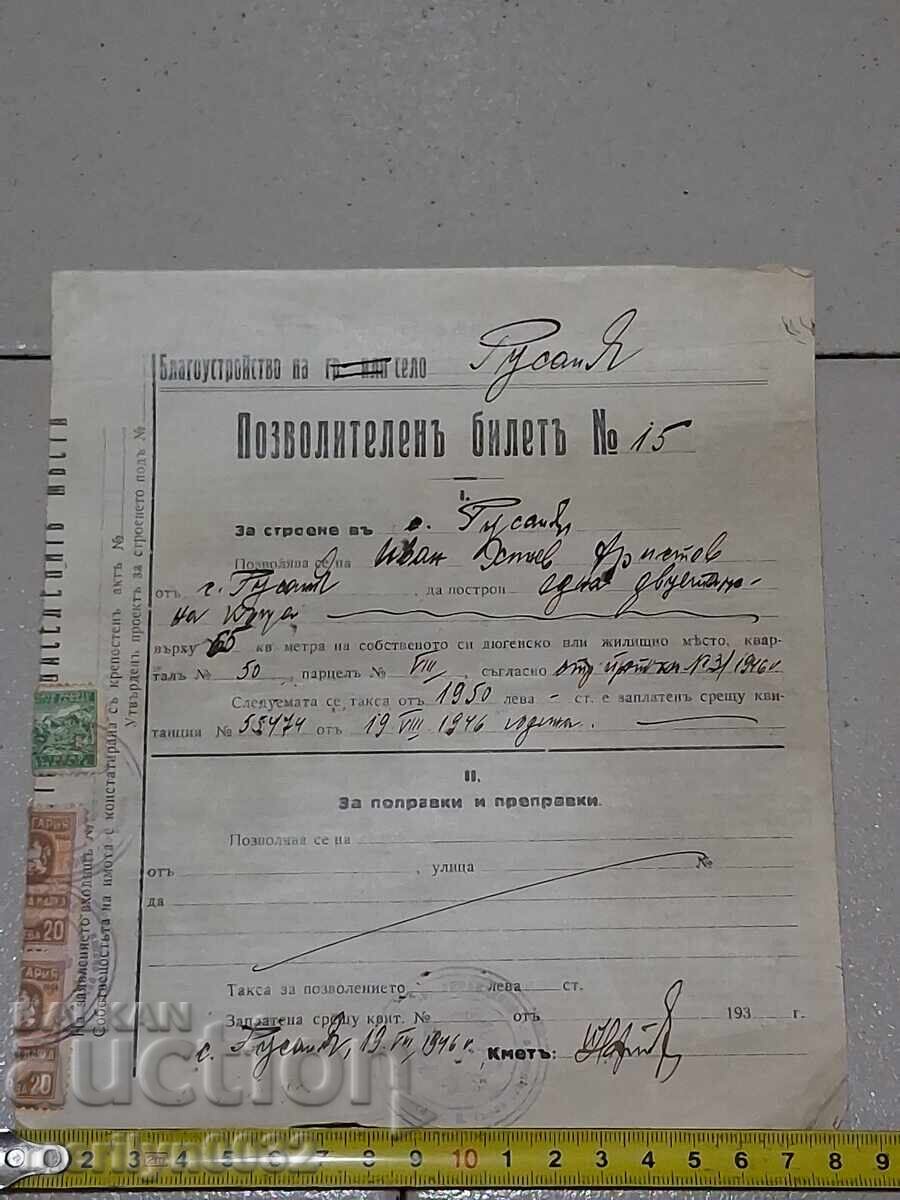 Благоустройство на гр. или село Гусаля
Позволителенъ билетъ № 15
I.
За строене въ с. Гусаля
Позволява се на Иван Христов
отъ с. Гусаля, да построи една двуетаж-
на къща
върху 65 кв метра на собственото си дюгенско или жилищно мѣсто, квар-
талъ № 50, парцелъ № VIII, съгласно № 3/1946 г.
Следуемата се такса отъ 1950 лева – ст. е заплатенъ срещу кви-
танция № 53474 отъ 19 VIII 1946 година.
II.
За поправки и преправки.
Позволява се на
отъ , улица №
да
Такса за позволението лева ст.
Заплатена срещу квит. № отъ 193 г.
с. Гусаля, 19. VIII 1946 г. Кметъ:
Утвърденъ проектъ за строенето подъ №
Собствеността на имота е констатирана съ крепостенъ актъ №
На заявлението входящъ №
БЪЛГАРИЯ
ЛЕВА 20
БЪЛГАРИЯ
ЛЕВА 20
BALKAN
auction
2 3 4 5 6 7 8 9 10 1 2 3 4 5 6 7 8 9